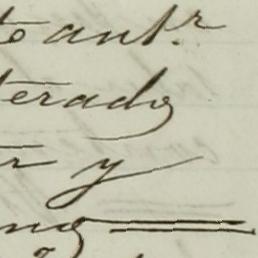 to antr.
terado
r y
no